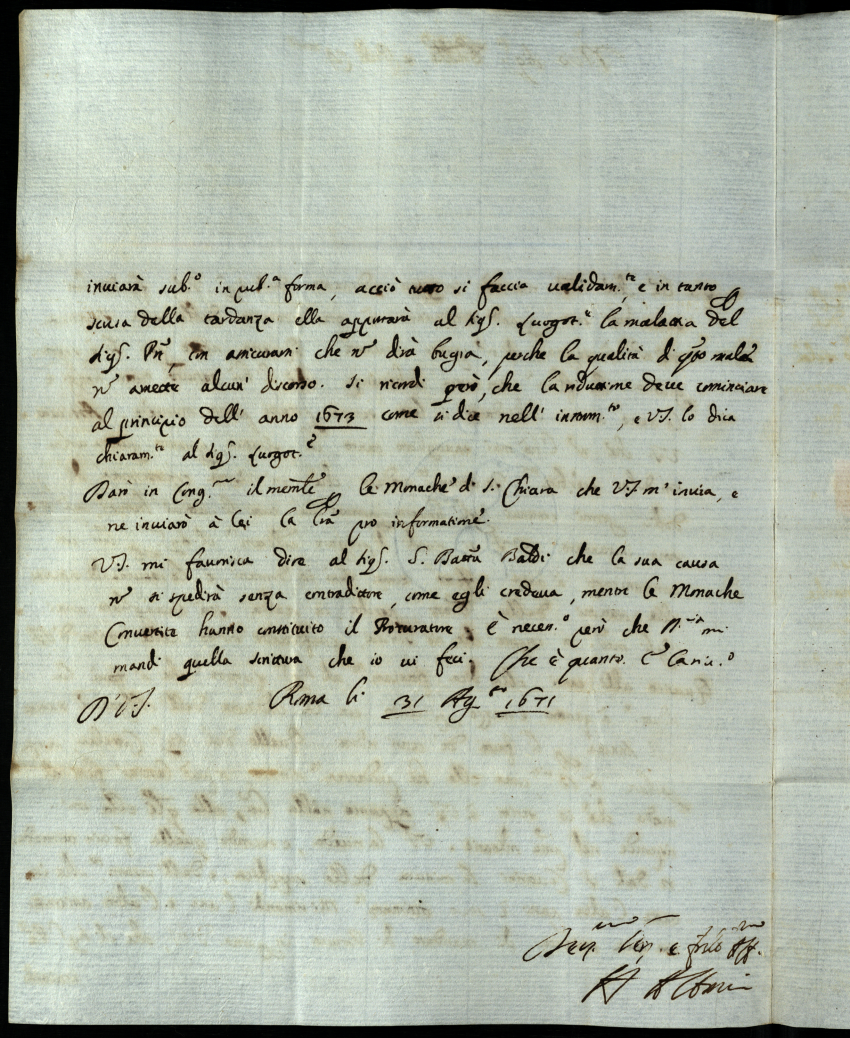 inviarà sub.º in pub.ª forma, acciò tutto si faccia validam.te, e in tanto p
scusa della tardanza ella apportarà al Sig.r Luogot.e la malatia del
Sig.r con assicurarsi che nō dirà bugia, perche la qualità di qsto male
nō amette alcun' discorso. Si ricordi però, che la riduttione deve cominciare
al principio dell' anno 1673 come si dice nell' instrum.to, e VS. lo dica
chiaram.te al Sig.r Luogot.e
Darò in Cong.ne il memle p le Monache di S. Chiara che VS m' invia, e
ne inviarò à lei la lrā pro informatione.
VS. mi favorisca dire al Sig.r G. Battā Baldi che la sua causa
nō si spedirà senza contradittore, come egli credeva, mentre le Monache
Convertite hanno constituito il Procuratore; È necess.º però che mi
mandi quella scrittura che io vi feci. Che è quanto.
D. VS. Roma li 31 Ag.to 1671